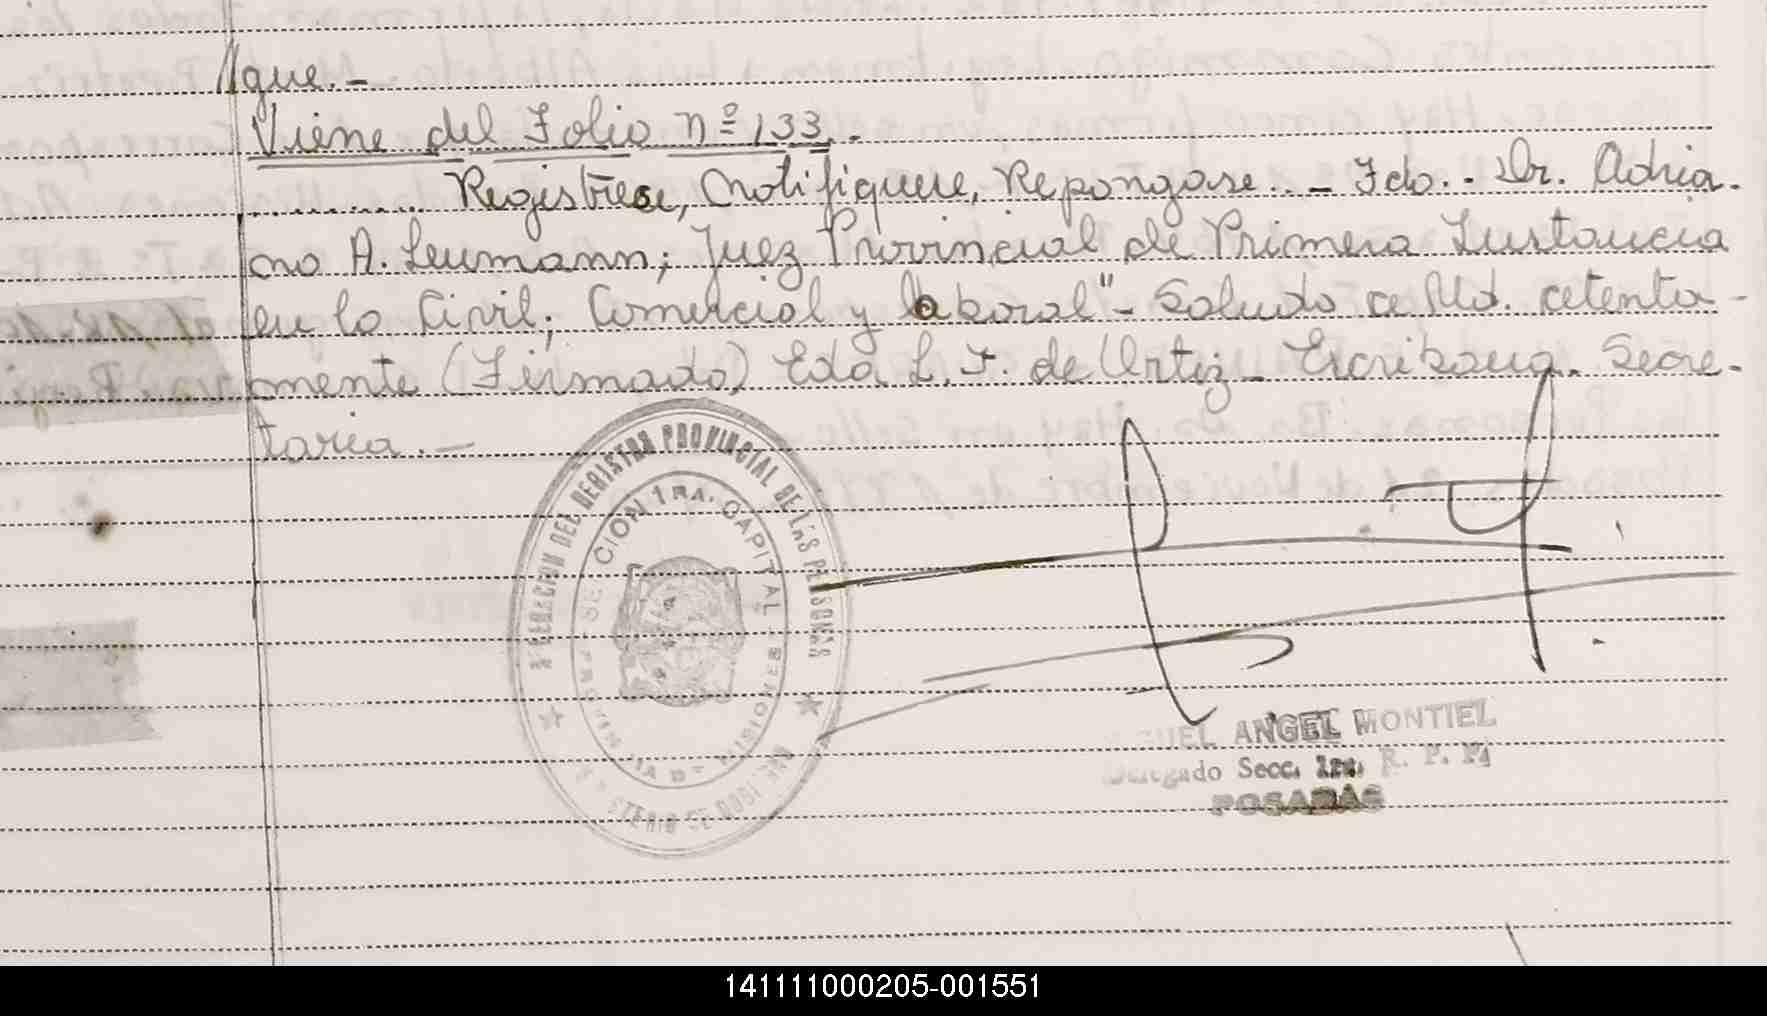 //que.-
Viene del Folio nº 133.-
........... Registrese, Notifiquese, Repongase.. - Fdo.- Dr. Adria-
no A. Leumann; Juez Provincial de Primera Instancia
en lo Civil; Comercial y laboral"- Saludo a Ud. atenta-
mente (Firmado) Eda L. F. de Ortiz - Escribana. Secre-
taria.-
DEL REGISTRO PROVINCIAL DE LAS PERSONAS
SECCION 1RA. CAPITAL
MISIONES
ANGEL MONTIEL
Delegado Secc. 1ra. R. P. P.
POSADAS
141111000205-001551